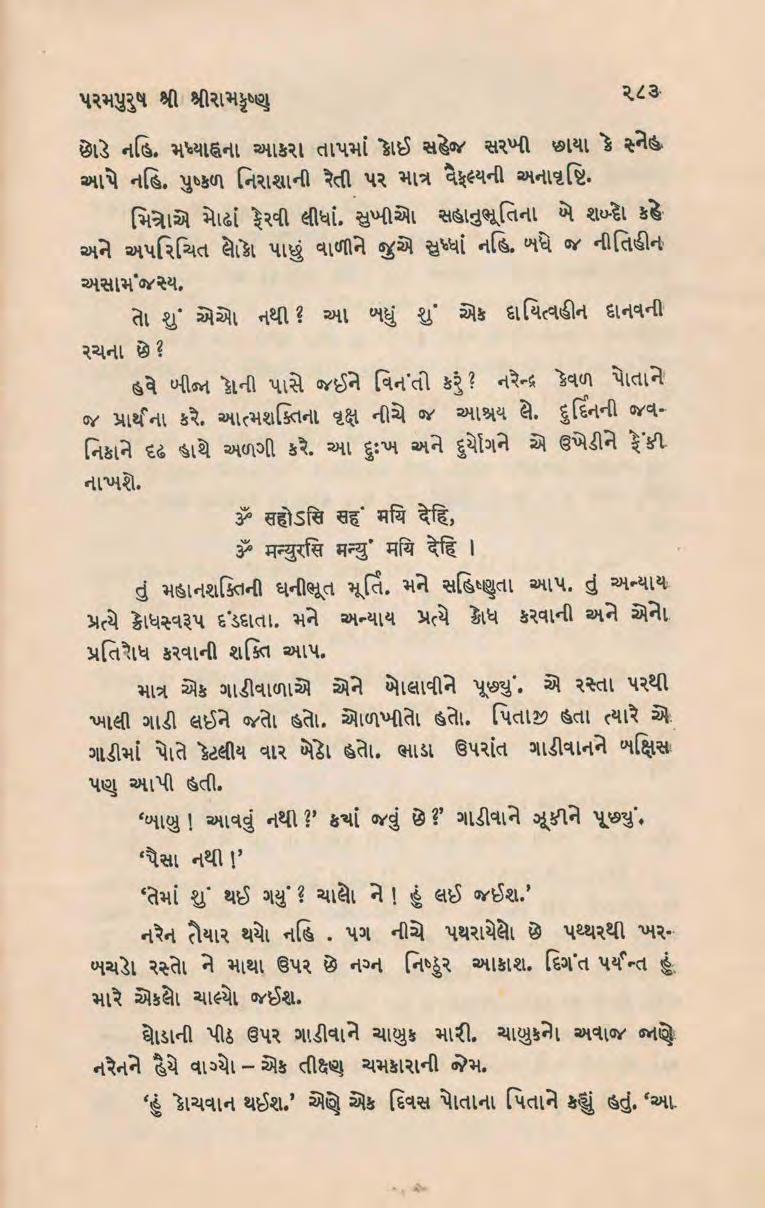 પરમપુરુષ શ્રી શ્રીરામકૃષ્ણ ૨૮૩
છોડે નહિ. મધ્યાહ્નના આકરા તાપમાં કોઈ સહેજ સરખી છાયા કે સ્નેહ
આપે નહિ. પુષ્કળ નિરાશાની રેતી પર માત્ર વૈફલ્યની અનાવૃષ્ટિ.
મિત્રોએ મોઢાં ફેરવી લીધાં. સુખીઓ સહાનુભૂતિના બે શબ્દો કહે
અને અપરિચિત લોકો પાછું વાળીને જુએ સુધ્ધાં નહિ. બધે જ નીતિહીન
અસામંજસ્ય.
તો શું એઓ નથી ? આ બધું શું એક દાયિત્વહીન દાનવની
રચના છે ?
હવે બીજા કોની પાસે જઈને વિનંતી કરું ? નરેન્દ્ર કેવળ પોતાને
જ પ્રાર્થના કરે. આત્મશક્તિના વૃક્ષ નીચે જ આશ્રય લે. દુર્દિનની જવ-
નિકાને દૃઢ હાથે અળગી કરે. આ દુઃખ અને દુર્યોગને એ ઉખેડીને ફેંકી
નાખશે.
ॐ सहोऽसि सहं मयि देहि,
ॐ मन्युरसि मन्युं मयि देहि ।
તું મહાનશક્તિની ઘનીભૂત મૂર્તિ. મને સહિષ્ણુતા આપ. તું અન્યાય
પ્રત્યે ક્રોધસ્વરૂપ દંડદાતા. મને અન્યાય પ્રત્યે ક્રોધ કરવાની અને એનો
પ્રતિરોધ કરવાની શક્તિ આપ.
માત્ર એક ગાડીવાળાએ એને બોલાવીને પૂછ્યું. એ રસ્તા પરથી
ખાલી ગાડી લઈને જતો હતો. ઓળખીતો હતો. પિતાજી હતા ત્યારે એ
ગાડીમાં પોતે કેટલીય વાર બેઠો હતો. ભાડા ઉપરાંત ગાડીવાનને બક્ષિસ
પણ આપી હતી.
‘બાબુ ! આવવું નથી ?’ કયાં જવું છે ?’ ગાડીવાને ઝૂકીને પૂછ્યું.
‘પૈસા નથી !’
‘તેમાં શું થઈ ગયું ? ચાલો ને ! હું લઈ જઈશ.’
નરેન તૈયાર થયો નહિ . પગ નીચે પથરાયેલો છે પથ્થરથી ખર-
બચડો રસ્તો ને માથા ઉપર છે નગ્ન નિષ્ઠુર આકાશ. દિગંત પર્યન્ત હું
મારે એકલો ચાલ્યો જઈશ.
ઘોડાની પીઠ ઉપર ગાડીવાને ચાબુક મારી. ચાબુકનો અવાજ જાણે
નરેનને હૈયે વાગ્યો – એક તીક્ષ્ણ ચમકારાની જેમ.
‘હું કોચવાન થઈશ.’ એણે એક દિવસ પોતાના પિતાને કહ્યું હતું. ‘આ